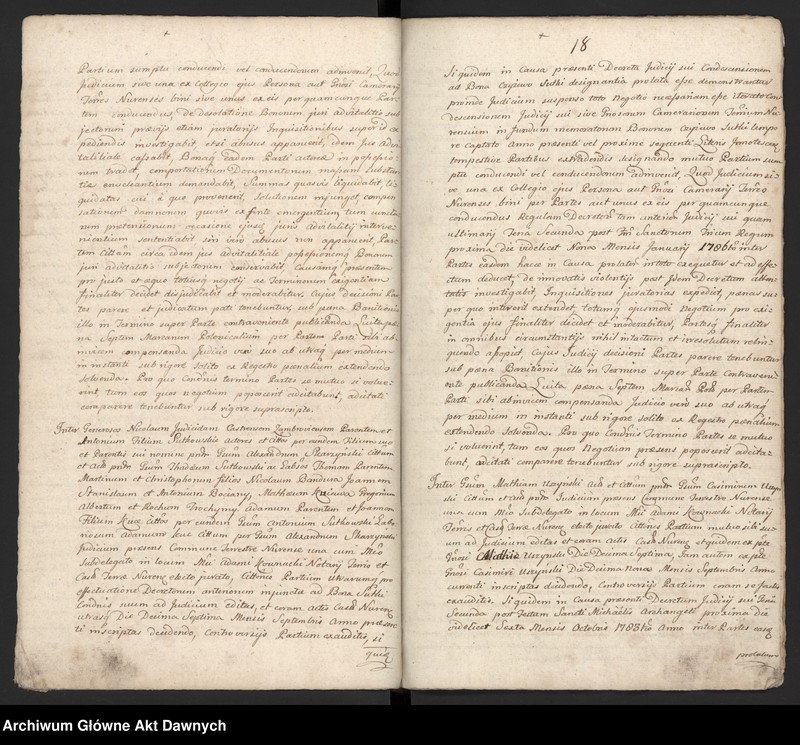 Partium sumptu conducendi vel conducendorum adinvenit, Quod
Judicium sive una ex Collegio ejus Persona aut Gnosi Camerarij
Terres Nurenses bini sive unus ex eis per quamcunque Par-
tem conducendus, de desolatione Bonorum juri advitalitatis sub-
jectorum prævijs etiam juratorijs Inquisitionibus super id ex
pediendis investigabit, etsi abusus appareant, idem Jus Advi
talitiale cassabit, Bonaq eadem Parti actoreæ in possessio-
nem tradet, comportationem Documentorum
demandabit, Summas quasvis liquidabit, li-
quidatas cui à quo provenerit, solutionem injunget, compen
sationem damnorum
rum prætensionum occasione ejusq juris Advitalitij interve-
nientium sententiabit sin vero abusus non appareant, Par-
tem Cittam circa idem jus advitalitiale possessionemq Bonorum
juri advitalitio subjectorum conservabit, causamq præsentem
pro justo et æquo totiusq negotij ac Terminorum exigentiam
finaliter decidet disjudicabit et moderabitur. Cujus decisioni Par
tes parere et judicatum pati tenebuntur, sub pœna Banitionis
illo in Termino super Parte contraveniente publicanda Luitaq pæ-
na Septem Marcarum Polonicalium per Partem Parti sibi ab-
invicem compensanda Judicio vero suo ab utraq per medium
in instanti sub rigore solito ex Regestro pœnalium extendendo
solvenda. Pro quo Condnis termino Partes se mutuo si volue-
rint tum eos quos negotium poposcerit adcitabunt, adcitati
comparere tenebuntur sub rigore suprascripto.
Inter Generosos Nicolaum Judicidam Castrensem Zambroviensem Parentem et
Antonium Filium Sutkowskie actores et Cittos per eundem Filium suo
et Parentis sui nomine pntr Gnum Alexandrum Skarzynski Cittum
et Actr pntr Gnum Thadæum Sutkowski ac Labrsos Thomam Parentem
Martinum et Christophorum filios Nicolaum Bandura Joannem
Stanislaum et Antonium Bociany, Matheum Gregorium
Albertum et Rochum Trochymy Adamum Parentem et Joannem
Filium Kuc Cittos per eundem Gnum Antonium Sutkowski Labo
riosum Adamum Kuc Cittum per Gnum Alexandrum Skarzynski
Judicium præsens Commune Terrestre Nurense una cum Mco
Subdelegato in locum Mci Adami Kownacki Notarij Terris et
Casts Terræ Nurenq electo jurato, Cittonis Partium utrarumq pro
effectuatione Decretorum anteriorum injunctæ ad Bona Sutki
Condnis suum ad Judicium editas, et coram Actis Casts Nurenq
utrasq Die Decima Septima Mensis Septembris Anno præsen-
ti inscriptas deducendo, controversijs Partium exauditis, si
quiq
18
Si quidem in Causa præsenti Decreta Judicij sui Condescensionem
ad Bona Czajewo Sutki designantia prolata esse demonstrantur
proinde Judicium suspenso toto Negotio necessariam esse iterato Con
descensionem Judicij sui sive Gnosorum Camerariorum Terrium Nu
rensium in fundum memoratorum Bonorum Czajewo Sutki tempo
re Captato Anno præsenti vel proxime sequenti Literis Innotescen
tempestive Partibus extradendis designando mutuo Partium sum
ptu conducendi vel conducendorum adinvenit, Quod Judicium si-
ve una ex Collegio ejus Persona aut Gnosi Camerarij Terres
Nurenses bini per Partes aut unus ex eis per quamcunque
conducendus Regulam Decretor tam anterior Judicij sui quam
ultimarij Feria Secunda post Ftm Sanctorum Trium Regum
proxima die videlicet Nona Mensis Januarij 1786to inter
Partes easdem hacce in Causa prolator in toto exequetur et ad effe-
ctum deducet, de innovatis violentijs post Idem Decretum atten-
tatis investigabit, Inquisitiones juratorias expediet, pœnas su-
per quo intererit extendet, totumq ejusmodi Negotium pro exi-
gentia ejus finaliter decidet et moderabitur, Partesq finaliter
in omnibus circumstantijs nihil intactum et irresolutum relin-
quendo afopiet, Cujus Judicij decisioni Partes parere tenebuntur
sub pœna Banitionis illo in Termino super Parte Contraveni-
ente publicanda Luita pœna Septem Marcar Poln per Partem
Parti sibi abinvicem compensanda Judicio vero suo ab utraq
per medium in instanti sub rigore solito ex Regestro pœnalium
extendendo solvenda. Pro quo Condnis Termino Partes se mutuo
si voluerint, tum eos quos Negotium præsens poposcerit adcita-
bunt, adcitati comparere tenebuntur sub rigore suprascripto.
Inter Gnum Mathiam Uszynski Actr et Cittum pntr Gnum Casimirum Uszyn
ski Cittum et Actr pntr Judicium præsens Commune Terrestre Nurense
una cum Mco Subdelegato in locum Mci Adami Kownacki Notarij
Terris et Casts Terræ Nurenq electo jurato Cittonis Partium mutuo sibi su-
um ad Judicium editas et coram Actis Casts Nurenq et quidem ex pte
Gnosi Mathiæ Uszynski Die Decima Septima, Tum autem ex pte
Gnosi Casimiri Uszynski Die Decima Nona Mensis Septembris Anno
currenti inscriptas deducendo, Controversijs Partium coram se factis
exauditis. Si quidem in Causa præsenti Decretum Judicij sui Feria
Secunda post Festum Sancti Michaelis Archangeli proxima die
videlicet Sexta Mensis Octobris 1783tio Anno inter Partes easq
prolatum
Archiwum Główne Akt Dawnych